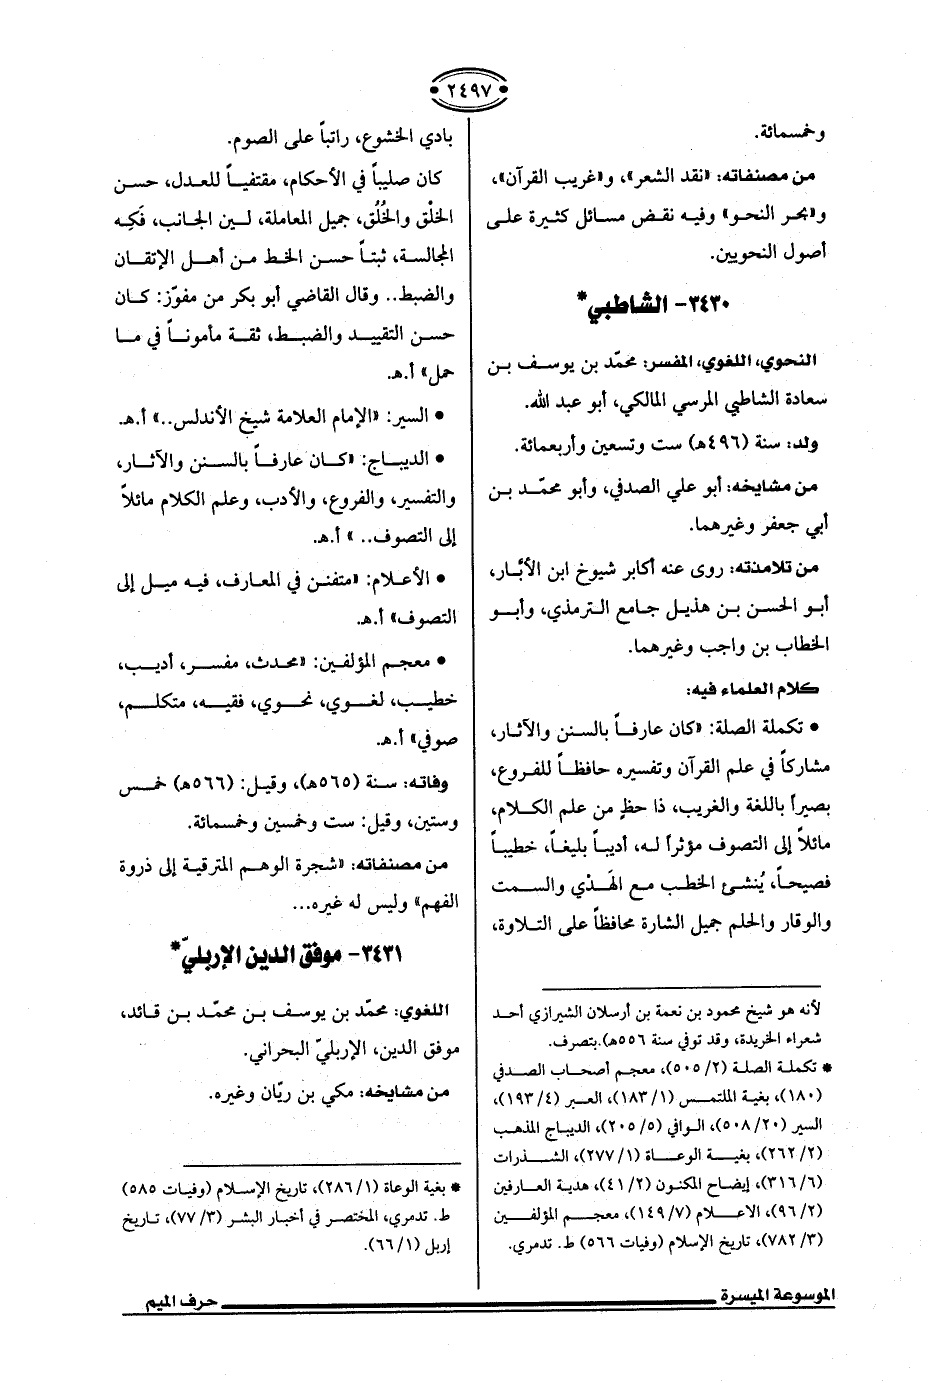 ٢٤٩٧
وخمسمائة.
من مصنفاته: «نقد الشعر»، و«غريب القرآن»،
و«بحر النحو» وفيه نقض مسائل كثيرة على
أصول النحويين.
٣٤٣٠- الشاطبي*
النحوي، اللغوي، المفسر: محمّد بن يوسف بن
سعادة الشاطبي المرسي المالكي، أبو عبد الله.
ولد: سنة (٤٩٦هـ) ست وتسعين وأربعمائة.
من مشايخه: أبو علي الصدفي، وأبو محمّد بن
أبي جعفر وغيرهما.
من تلامذته: روى عنه أكابر شيوخ ابن الأبّار،
أبو الحسن بن هذيل جامع الترمذي، وأبو
الخطاب بن واجب وغيرهما.
كلام العلماء فيه:
• تكملة الصلة: «كان عارفاً بالسنن والآثار،
مشاركاً في علم القرآن وتفسيره حافظاً للفروع،
بصيراً باللغة والغريب، ذا حظٍ من علم الكلام،
مائلاً إلى التصوف مؤثراً له، أديباً بليغاً، خطيباً
فصيحاً، يُنشئ الخطب مع الهَدْي والسمت
والوقار والحلم جميل الشارة محافظاً على التلاوة،
لأنه هو شيخ محمود بن نعمة بن أرسلان الشيرازي أحد
شعراء الخريدة، وقد توفي سنة ٥٥٦هـ).بتصرف.
* تكملة الصلة (٢/ ٥٠٥)، معجم أصحاب الصدفي
(١٨٠)، بغية الملتمس (١/ ١٨٣)، العبر (٤/ ١٩٣)،
السير (٢٠/ ٥٠٨)، الوافي (٥/ ٢٠٥)، الديباج المذهب
(٢/ ٢٦٢)، بغية الوعاة (١/ ٢٧٧)، الشذرات
(٦/ ٣١٦)، إيضاح المكنون (٢/ ٤١)، هدية العارفين
(٢/ ٩٦)، الاعلام (٧/ ١٤٩)، معجم المؤلفين
(٣/ ٧٨٢)، تاريخ الإسلام (وفيات ٥٦٦) ط. تدمري.
بادي الخشوع، راتباً على الصوم.
كان صليباً في الأحكام، مقتفياً للعدل، حسن
الخلْق والخُلُق، جميل المعاملة، لين الجانب، فَكِه
المجالسة، ثبتاً حسن الخط من أهل الإتقان
والضبط.. وقال القاضي أبو بكر من مفوّز: كان
حسن التقييد والضبط، ثقة مأموناً في ما
حمل» أ.هـ.
• السير: «الإمام العلامة شيخ الأندلس..» أ.هـ.
• الديباج: «كان عارفاً بالسنن والآثار،
والتفسير، والفروع، والأدب، وعلم الكلام مائلاً
إلى التصوف.. » أ.هـ.
• الأعلام: «متفنن في المعارف، فيه ميل إلى
التصوف» أ.هـ.
• معجم المؤلفين: «محدث، مفسر، أديب،
خطيب، لغوي، نحوي، فقيه، متكلم،
صوفي» أ.هـ.
وفاته: سنة (٥٦٥هـ)، وقيل: (٥٦٦هـ) خمس
وستين، وقيل: ست وخمسين وخمسمائة.
من مصنفاته: «شجرة الوهم المترقية إلى ذروة
الفهم» وليس له غيره...
٣٤٣١- موفق الدين الإربليّ*
اللغوي: محمّد بن يوسف بن محمّد بن قائد،
موفق الدين، الإربليّ البحراني.
من مشايخه: مكي بن ريّان وغيره.
* بغية الوعاة (١/ ٢٨٦)، تاريخ الإسلام (وفيات ٥٨٥)
ط. تدمري، المختصر في أخبار البشر (٣/ ٧٧)، تاريخ
إربل (١/ ٦٦).
الموسوعة الميسرة
حرف الميم